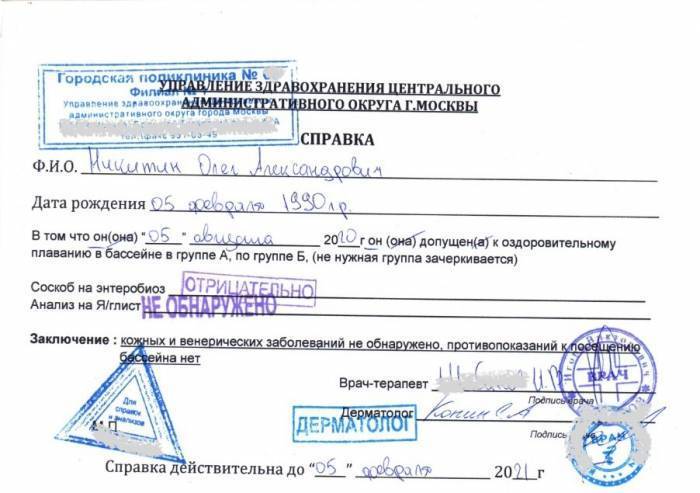 Городская поликлиника №
Филиал №
Управление здравоохранения Центрального
административного округа города Москвы
УПРАВЛЕНИЕ ЗДРАВОХРАНЕНИЯ ЦЕНТРАЛЬНОГО
АДМИНИСТРАТИВНОГО ОКРУГА Г.МОСКВЫ
СПРАВКА
Ф.И.О. Никитин Олег Александрович
Дата рождения 05 февраля 1990 г.
В том что он(она) "05" августа 2020 г он (она) допущен(а) к оздоровительному
плаванию в бассейне в группе А, по группе Б, (не нужная группа зачеркивается)
Соскоб на энтеробиоз ОТРИЦАТЕЛЬНО
Анализ на Я/глист НЕ ОБНАРУЖЕНО
Заключение : кожных и венерических заболеваний не обнаружено, противопоказаний к посещению
бассейна нет
Врач-терапевт И.В
Подпись врача
ВРАЧ
Для
справок
и анализов
М.П.
ДЕРМАТОЛОГ
Дерматолог
Подпись
Справка действительна до "05" февраля 2021 г